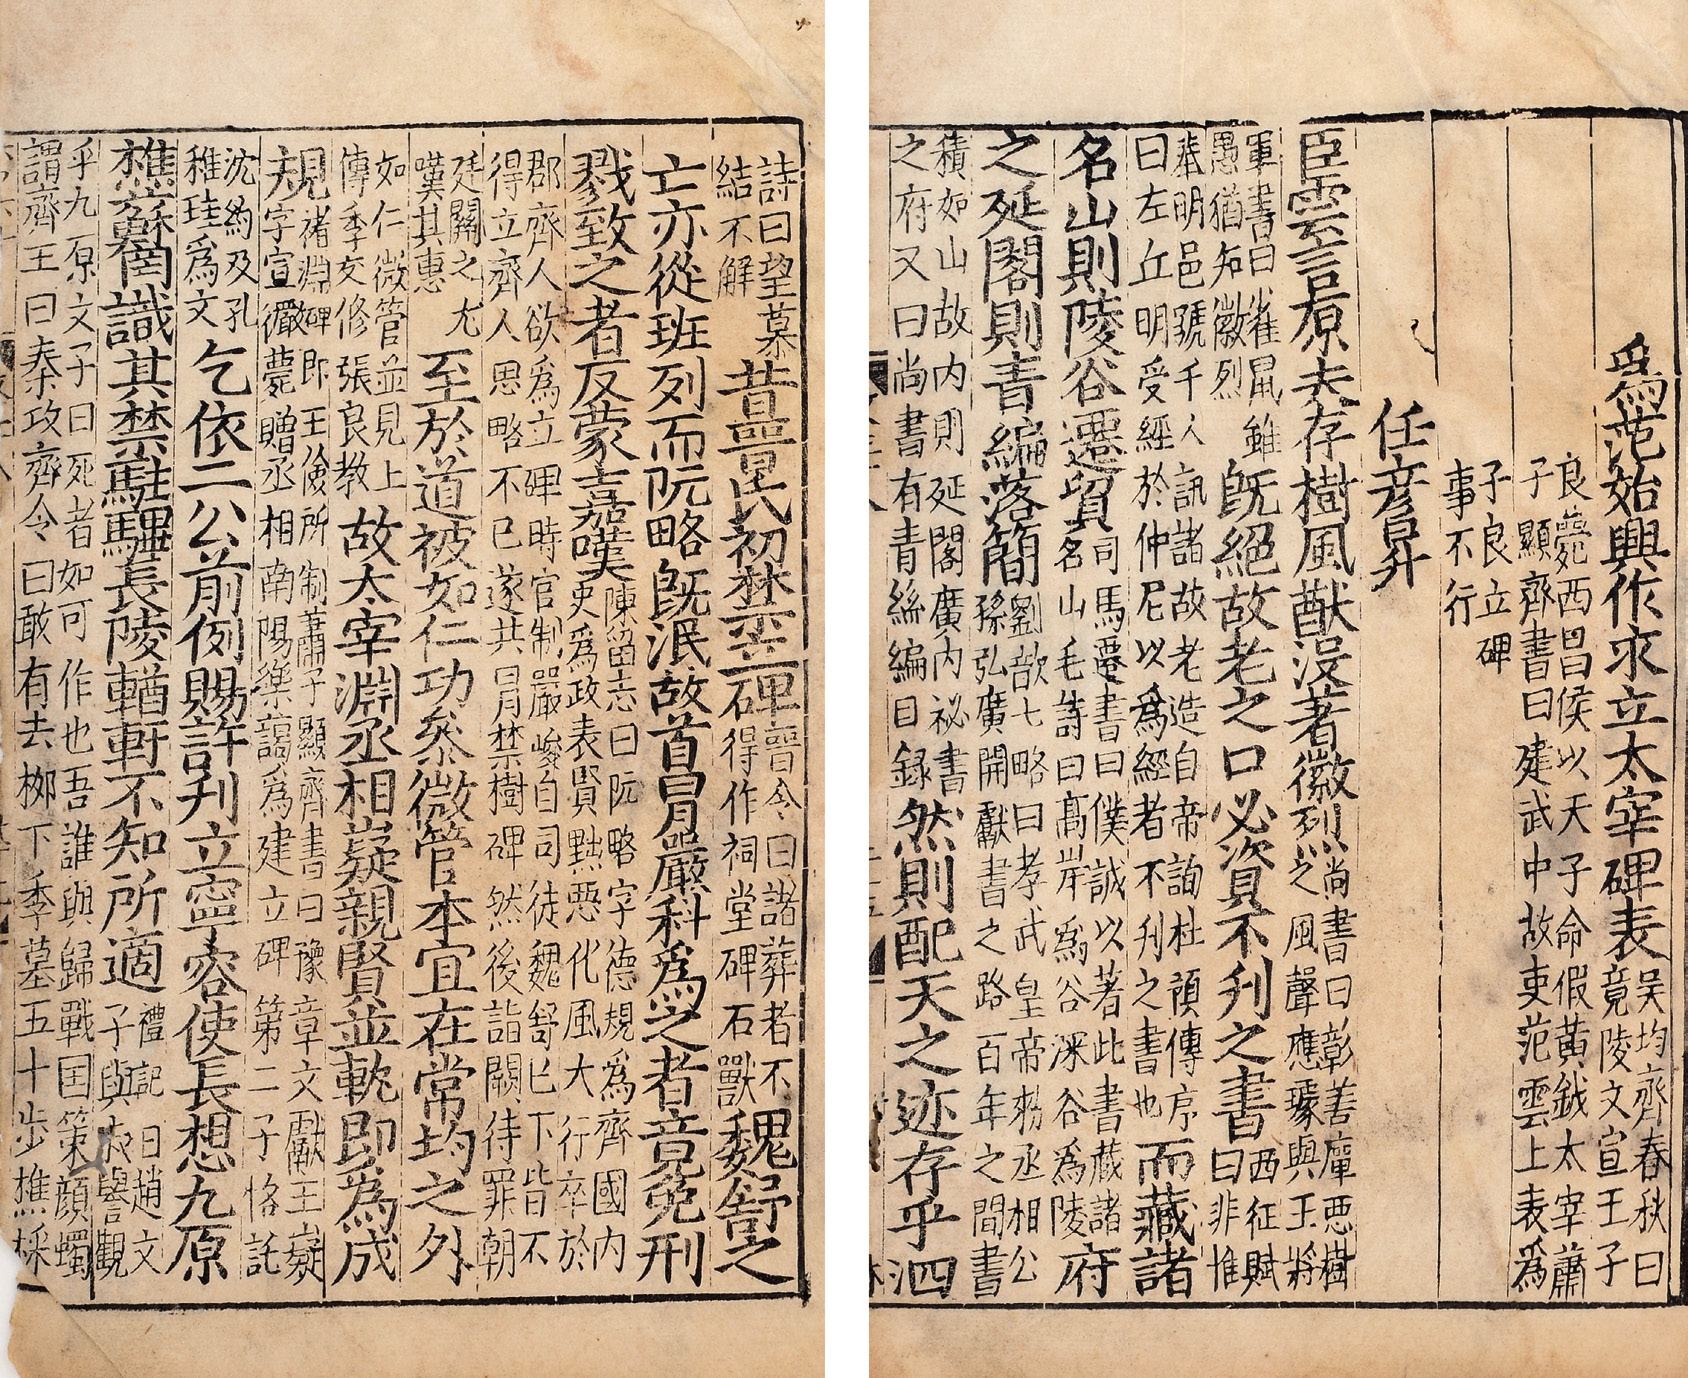 爲范始興作求立太宰碑表吳均齊春秋曰竟陵文宣王子
良薨西昌侯以天子命假黃鉞太宰蕭
子顯齊書曰建武中故吏范雲上表爲
子良立碑
事不行
任彦昇
臣雲言原夫存樹風猷沒著徽烈尚書曰彰善癉惡樹之風聲應璩與王將
軍書曰雀鼠雖愚猶知徽烈既絕故老之口必資不刋之書西征賦曰非惟
葬明邑號千人訊諸故老造自帝詢杜預傳序曰左丘明受經於仲尼以爲經者不刋之書也而藏諸
名山則陵谷遷貿司馬遷書曰僕誠以著此書藏諸名山毛詩曰髙岸爲谷深谷爲陵府
之延閣則青編落簡劉歆七略曰孝武皇帝勑丞相公孫弘廣開獻書之路百年之間書
積如山故内則延閣廣内祕書之府又曰尚書有青絲編目録然則配天之迹存乎泗
詩曰望慕結不解昔晉氏初禁立碑晉令曰諸葬者不得作祠堂碑石獸魏舒之
亡亦從班列而阮略既泯故首冒嚴科爲之者竟免刑
戮致之者反蒙嘉嘆陳留志曰阮略字德規爲齊國内史爲政表賢黜惡化風大行卒於
郡齊人欲爲立碑時官制嚴峻自司徒魏舒已下皆不得立齊人思略不已遂共冒禁樹碑然後詣闕待罪朝
廷聞之尤嘆其惠至於道被如仁功叅微管本宜在常均之外
如仁微管並見上傅季友修張良教故太宰淵丞相嶷親賢並軌即爲成
規褚淵碑即王儉所制蕭子顯齊書曰豫章文獻王嶷字宣儼薨贈丞相南陽樂藹爲建立碑第二子恪託
沈約及孔稚珪爲文乞依二公前例賜許刋立寧容使長想九原
樵蘇罔識其禁駐驆長陵輶軒不知所適禮記曰趙文子與叔譽觀
乎九原文子曰死者如可作也吾誰與歸戰国策顔蠋
謂齊王曰秦攻齊令曰敢有去栁下季墓五十步樵採